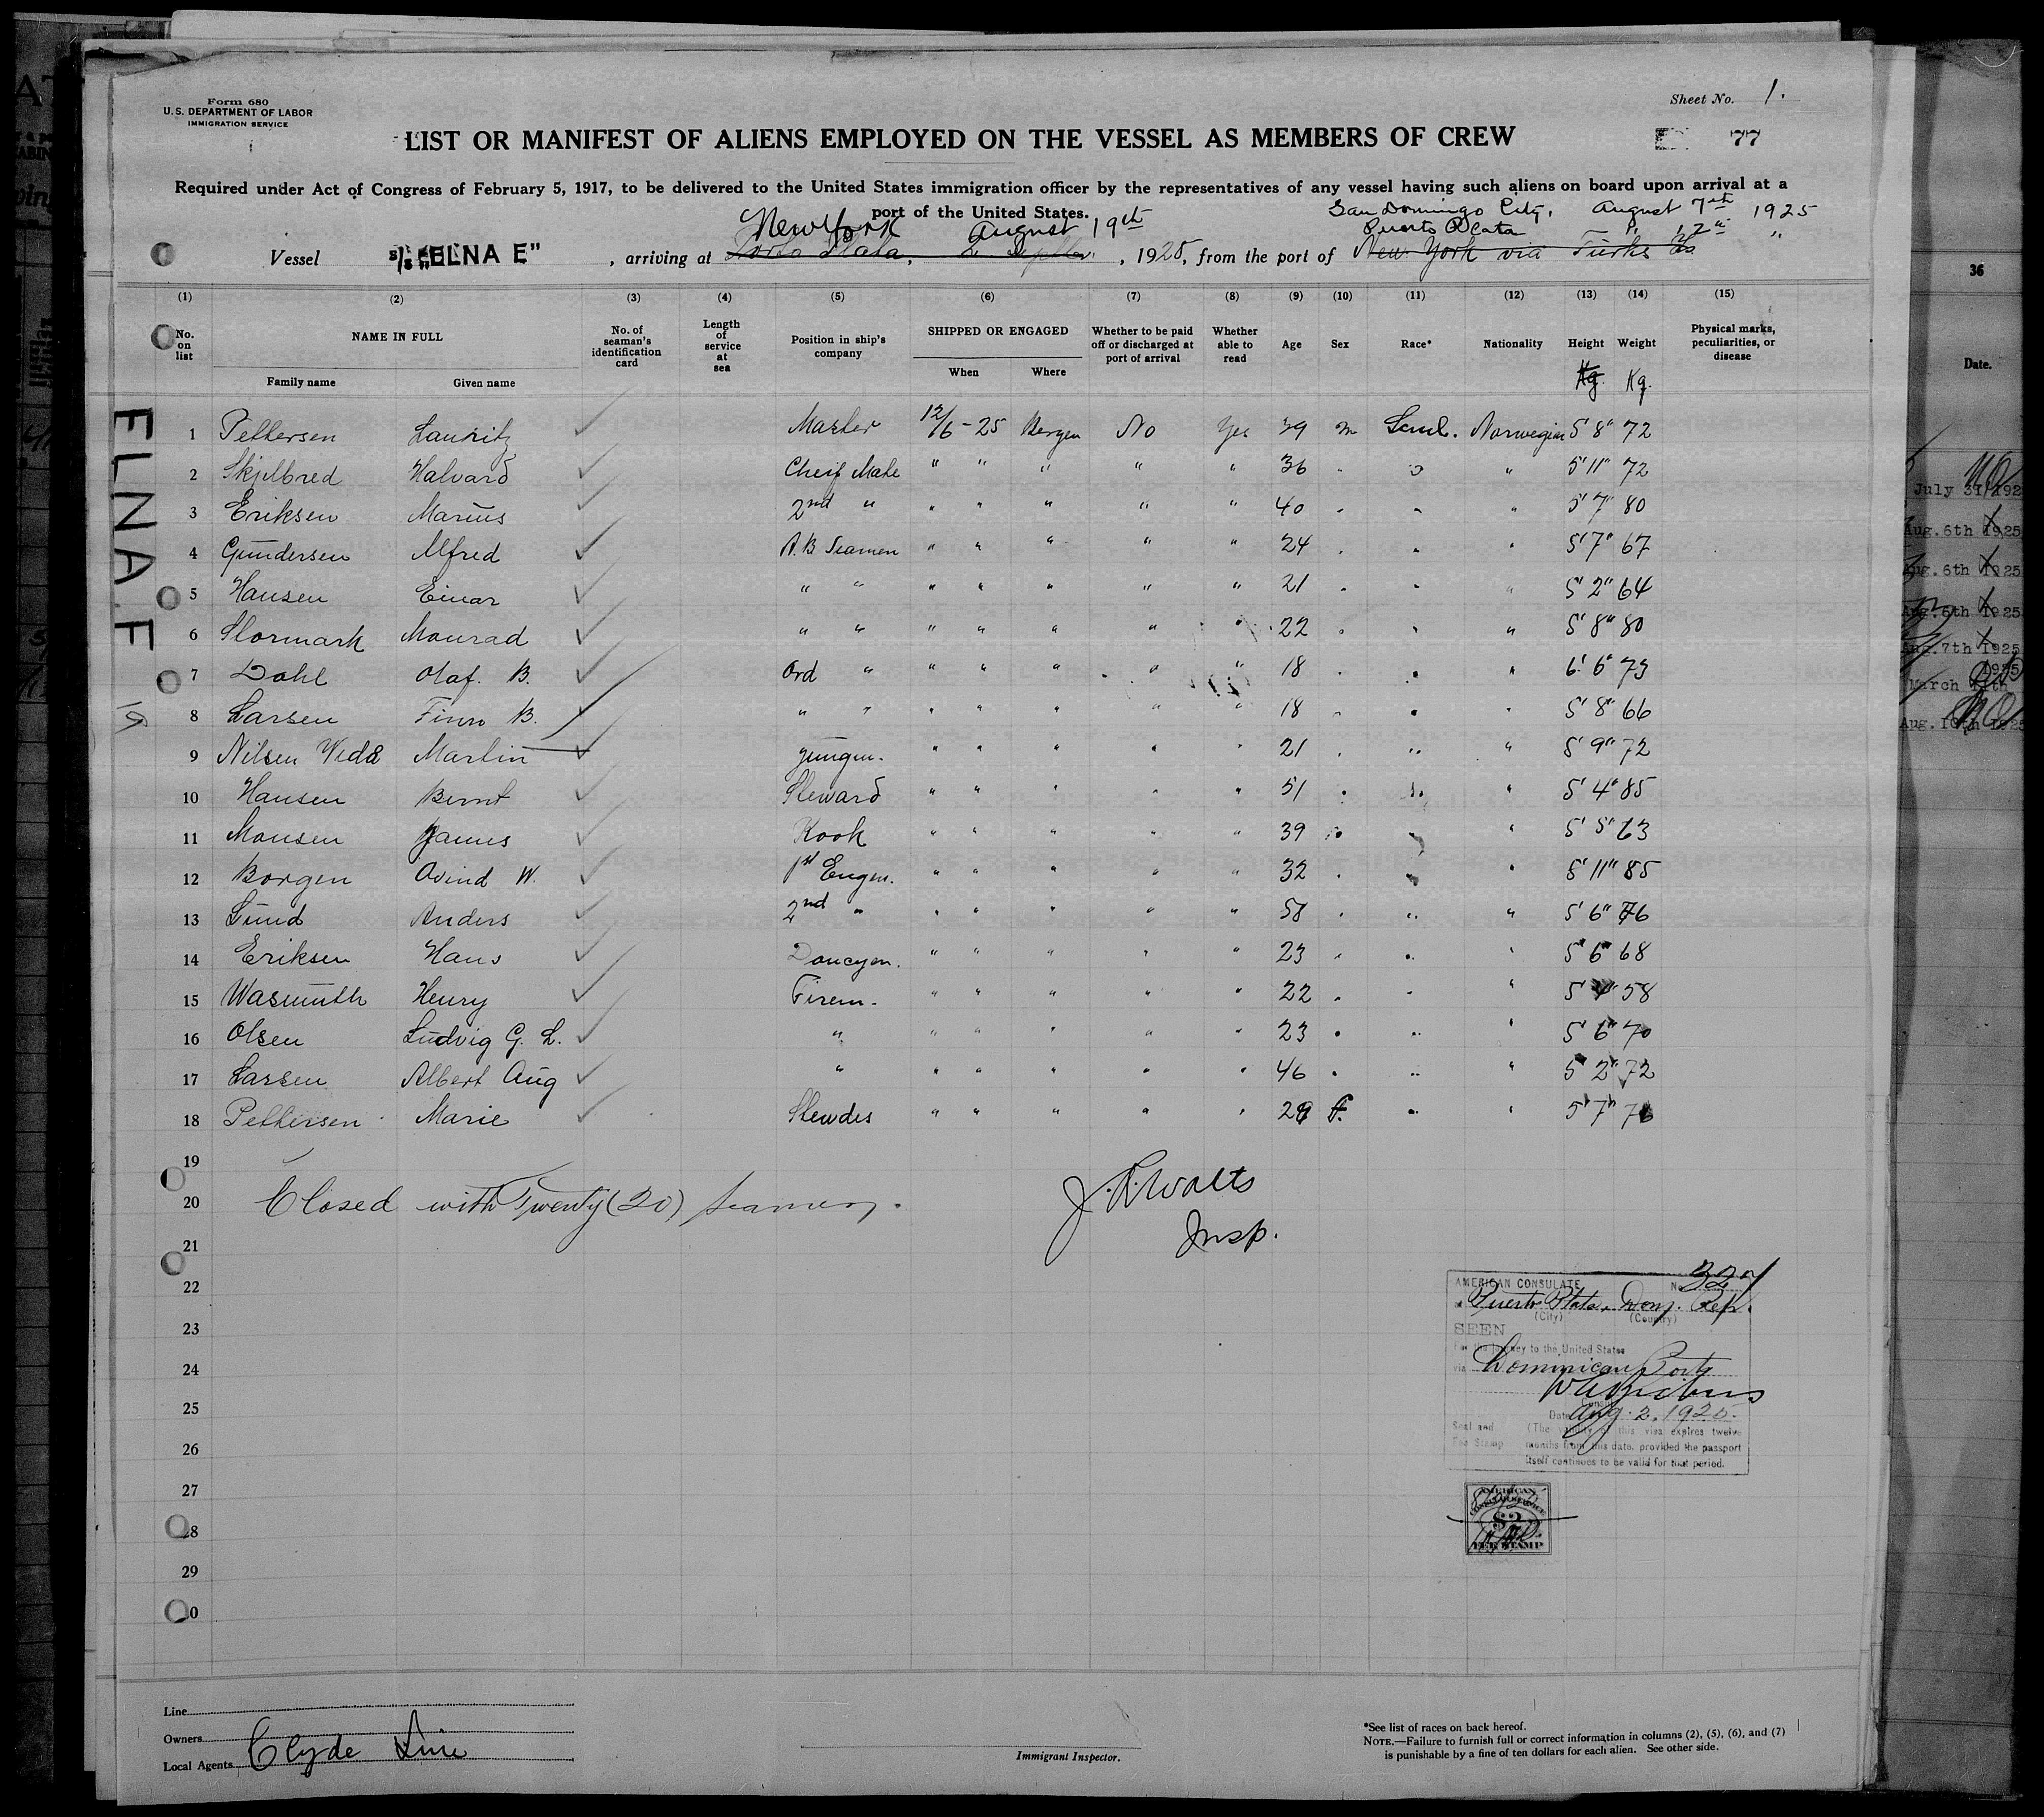 Form 680
U.S. DEPARTMENT OF LABOR
IMMIGRATION SERVICE
Sheet No. 1.
LIST OR MANIFEST OF ALIENS EMPLOYED ON THE VESSEL AS MEMBERS OF CREW
77
Required under Act of Congress of February 5, 1917, to be delivered to the United States immigration officer by the representatives of any vessel having such aliens on board upon arrival at a
port of the United States.
San Domingo City, August 7th 1925
New York August 19th
Puerto Plata " 12" "
Vessel S/S "ELNA E" , arriving at Porto Plata, 2 , 1925, from the port of New York via Turks Is
(1) (2) (3) (4) (5) (6) (7) (8) (9) (10) (11) (12) (13) (14) (15)
No. on list NAME IN FULL Family name Given name No. of seaman's identification card Length of service at sea Position in ship's company SHIPPED OR ENGAGED When Where Whether to be paid off or discharged at port of arrival Whether able to read Age Sex Race* Nationality Height Weight Physical marks, peculiarities, or disease
Kg. Kg.
1 Pettersen Lauritz Master 12/6-25 Bergen No Yes 39 m Scand. Norwegian 5'8" 72
2 Skjelbred Halvard Cheif Mate " " " " " 36 " " " 5'11" 72
3 Eriksen Marius 2nd " " " " " " 40 " " " 5'7" 80
4 Gundersen Alfred A.B Seamen " " " " " 24 " " " 5'7" 67
5 Hansen Einar " " " " " " " 21 " " " 5'2" 64
6 Stormark Monrad " " " " " " " 22 " " " 5'8" 80
7 Dahl Olaf. B. Ord " " " " " " 18 " " " 6'6" 73
8 Larsen Finn B. " " " " " " " 18 " " " 5'8" 66
9 Nilsen Wedø Martin yungm. " " " " " 21 " " " 5'9" 72
10 Hansen Bernt Steward " " " " " 51 " " " 5'4" 85
11 Monsen James Kook " " " " " 39 " " " 5'5" 63
12 Borgen Ovind W. 1st Engen. " " " " " 32 " " " 5'11" 85
13 Lund Anders 2nd " " " " " " 58 " " " 5'6" 76
14 Eriksen Hans Doncym. " " " " " 23 " " " 5'6" 68
15 Wasmuth Henry Firem. " " " " " 22 " " " 5'4" 58
16 Olsen Ludvig G. L. " " " " " " 23 " " " 5'6" 70
17 Larsen Albert Aug " " " " " " 46 " " " 5'2" 72
18 Pettersen Marie Stewdes " " " " " 29 f. " " 5'7" 76
19
20 Closed with Twenty (20) seamen.
J. R. Watts
Insp.
21
22
23
24
25
26
27
28
29
30
ELNA.F
AMERICAN CONSULATE No. 327
at Puerto Plata, Dom. Rep.
(City) (Country)
SEEN
For the journey to the United States
via Dominican Ports
Consul
Date Aug. 2. 1925.
Seal and Fee Stamp
(The validity of this visa expires twelve
months from this date, provided the passport
itself continues to be valid for that period.
AMERICAN
CONSULAR SERVICE
$2
FEE STAMP
Line
Owners
Local Agents Clyde Line
Immigrant Inspector.
*See list of races on back hereof.
NOTE.—Failure to furnish full or correct information in columns (2), (5), (6), and (7)
is punishable by a fine of ten dollars for each alien. See other side.
36
Date.
July 31/192
Aug. 6th 1925
Aug. 6th 1925
Aug. 6th 1925
Aug. 7th 1925
1925
March 11th
Aug. 10th 1925